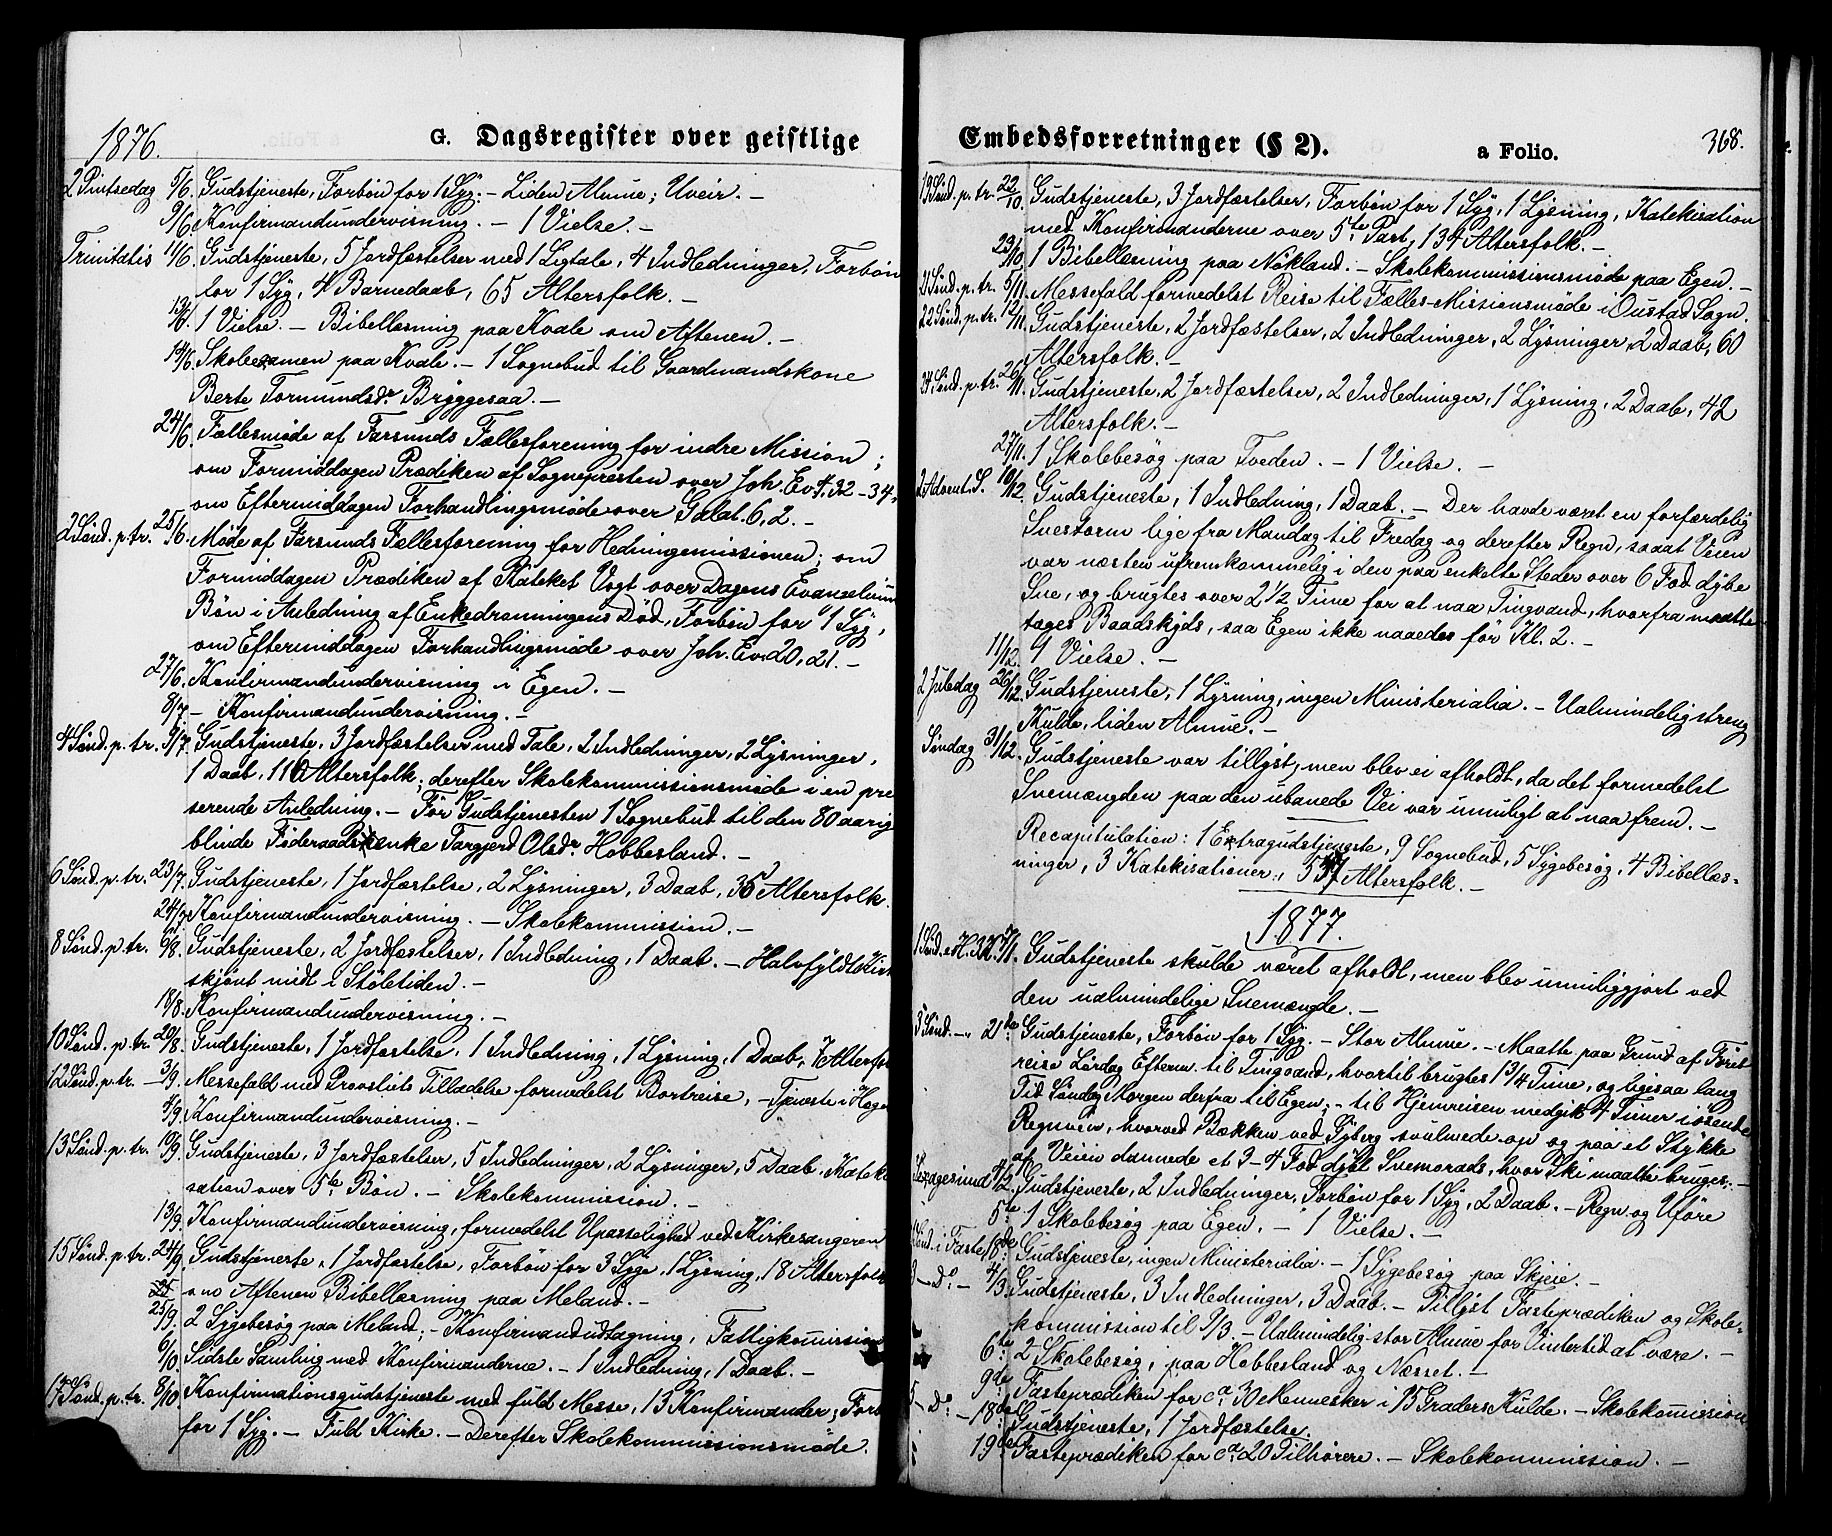 1876.
G. Dagsregister over geistlige
2 Pintsedag 5/6. Gudstjeneste, Forbøn for 1 Syg. – Liden Almue; Uveir. –
9/6 Konfirmandundervisning. – 1 Vielse. –
Trinitatis 11/6. Gudstjeneste, 5 Jordfæstelser med 1 Ligtale, 4 Indledninger, Forbøn
for 1 Syg, 4 Barnedaab, 65 Altersfolk. –
13/6. 1 Vielse. – Bibellæsning paa Kvale om Aftenen. –
14/6. Skoleexamen paa Kvale. – 1 Sognebud til Gaardmandskone
Berte Tormundsdr. Bryggesaa. –
24/6. Fællesmøde af Farsunds Fællesforening for indre Mission;
om Formiddagen Prædiken af Sognepresten over Joh. Ev. 4, 32–34,
om Eftermiddagen Forhandlingsmøde over Galat. 6, 2. –
2 Sønd. p. tr. 25/6. Møde af Farsunds Fællesforening for Hedningemissionen; om
Formiddagen Prædiken af Kateket Vogt over Dagens Evangelium
Bøn i Anledning af Enkedronningens Død, Forbøn for 1 Syg,
om Eftermiddagen Forhandlingsmøde over Joh. Ev. 20, 21. –
27/6. Konfirmandundervisning i Egen. –
8/7. – Konfirmandundervisning. –
4 Sønd. p. tr. 9/7. Gudstjeneste, 3 Jordfæstelser med Tale, 2 Indledninger, 2 Lysninger,
1 Daab, 116 Altersfolk; derefter Skolekommissionsmøde i en pre
serende Anledning. – Før Gudstjenesten 1 Sognebud til den 80 aarige
blinde Føderaadsenke Targjerd Olsdr. Hobbesland. –
6 Sønd. p. tr. 23/7. Gudstjeneste, 1 Jordfæstelse, 2 Lysninger, 3 Daab, 35 Altersfolk.
24/7 Konfirmandundervisning. – Skolekommission. –
8 Sønd. p. tr. 6/8. Gudstjeneste, 2 Jordfæstelser, 1 Indledning, 1 Daab. – Halvfyldt Kirke
skjønt midt i Støletiden. –
18/8. Konfirmandundervisning. –
10 Sønd. p. tr. 20/8. Gudstjeneste, 1 Jordfæstelse, 1 Indledning, 1 Lysning, 1 Daab,
12 Sønd. p. tr. – 3/9. Messefald med Provstiets Tilladelse formedelst Bortreise, – Tjeneste i
4/9. Konfirmandundervisning. –
13 Sønd. p. tr. 10/9. Gudstjeneste, 3 Jordfæstelser, 5 Indledninger, 2 Lysninger, 5 Daab. Kateki
sation over 5te Bøn. – Skolekommission. –
13/9. Konfirmandundervisning, formedelst Upasselighed ved Kirkesangeren
15 Sønd. p. tr. 24/9. Gudstjeneste, 1 Jordfæstelse, Forbøn for 3 Syge, 1 Lysning, 18 Altersfolk
om Aftenen Bibellæsning paa Meland. –
25/9. 2 Sygebesøg paa Meland; – Konfirmandudtagning, Fattigkommission
6/10. Sidste Samling med Konfirmanderne. – 1 Indledning, 1 Daab. –
17 Sønd. p. tr. 8/10 Konfirmationsgudstjeneste med fuld Messe, 13 Konfirmander; Forb
for 1 Syg. – Fuld Kirke. – Derefter Skolekommissionsmøde.
Embedsforretninger (§ 2).
a Folio.
368.
19 Sønd. p. tr. 22/10. Gudstjeneste, 3 Jordfæstelser, Forbøn for 1 Syg, 1 Lysning, Katekisation
med Konfirmanderne over 5te Part, 134 Altersfolk. –
23/10. 1 Bibellæsning paa Nøkland. – Skolekommissionsmøde paa Egen. –
21 Sønd. p. tr. 5/11. Messefald formedelst Reise til Fælles-Missionsmøde i Oustad Sogn.
22 Sønd. p. tr. 12/11. Gudstjeneste, 2 Jordfæstelser, 2 Indledninger, 2 Lysninger, 2 Daab, 60
Altersfolk. –
24 Sønd. p. tr. 26/11. Gudstjeneste, 2 Jordfæstelser, 2 Indledninger, 1 Lysning, 2 Daab, 42
Altersfolk. –
27/11. 1 Skolebesøg paa Tveden. – 1 Vielse. –
2 Advent. S. 10/12. Gudstjeneste, 1 Indledning, 1 Daab. – Der havde været en forfærdelig
Snestorm lige fra Mandag til Fredag og derefter Regn, saaat Veien
var næsten ufremkommelig i den paa enkelte Steder over 6 Fod dybe
Sne, og brugtes over 2 1/2 Time for at naa Tingvand, hvorfra maatte
tages Baadskyds, saa Egen ikke naaedes før Kl. 2. –
11/12. 9 Vielse. –
2 Juledag 26/12. Gudstjeneste, 1 Lysning, ingen Ministerialia. – Ualmindelig streng
Kulde, liden Almue. –
Søndag 31/12. Gudstjeneste var tillyst, men blev ei afholdt, da det formedelst
Snemængden paa den ubanede Vei var umuligt at naa frem. –
Recapitulation: 1 Extragudstjeneste, 9 Sognebud, 5 Sygebesøg, 4 Bibellæs-
ninger, 3 Katekisationer, 537 Altersfolk. –
1877.
1 Sønd. e. H. 3 K. 7/1. Gudstjeneste skulde været afholdt, men blev umuliggjort ved
den ualmindelige Snemængde. –
3 Sønd. – 21de. Gudstjeneste, Forbøn for 1 Syg. – Stor Almue. – Maatte paa Grund af Føret
reise Lørdag Efterm. til Tingvand, hvortil brugtes 1 3/4 Time, og ligesaa lang
Tid Søndag Morgen derfra til Egen; – til Hjemreisen medgik 4 Timer i øsende
Regnveir, hvorved Bækken ved Syberg svulmede op og paa et Stykke
af Veien dannede et 3–4 Fod dybt Snemorads, hvor Ski maatte bruges. –
Sexagesima 4/2. Gudstjeneste, 2 Indledninger, Forbøn for 1 Syg, 2 Daab. – Regn og Uføre
5te 1 Skolebesøg paa Egen. – 1 Vielse. –
Sønd. i Faste 18de Gudstjeneste, ingen Ministerialia. – 1 Sygebesøg paa Skjeie. –
– Do. – 4/3. Gudstjeneste, 3 Indledninger, 3 Daab. – Tillyst Fasteprædiken og Skole-
kommission til 9/3. – Ualmindelig stor Almue for Vintertid at være. –
6te 2 Skolebesøg, paa Hobbesland og Næsset. –
9de Fasteprædiken for ca. 30 Mennesker i 15 Graders Kulde. – Skolekommission
5 – Do. – 18de Gudstjeneste, 1 Jordfæstelse.
19de Fasteprædiken for ca. 20 Tilhørere. – Skolekommission. –